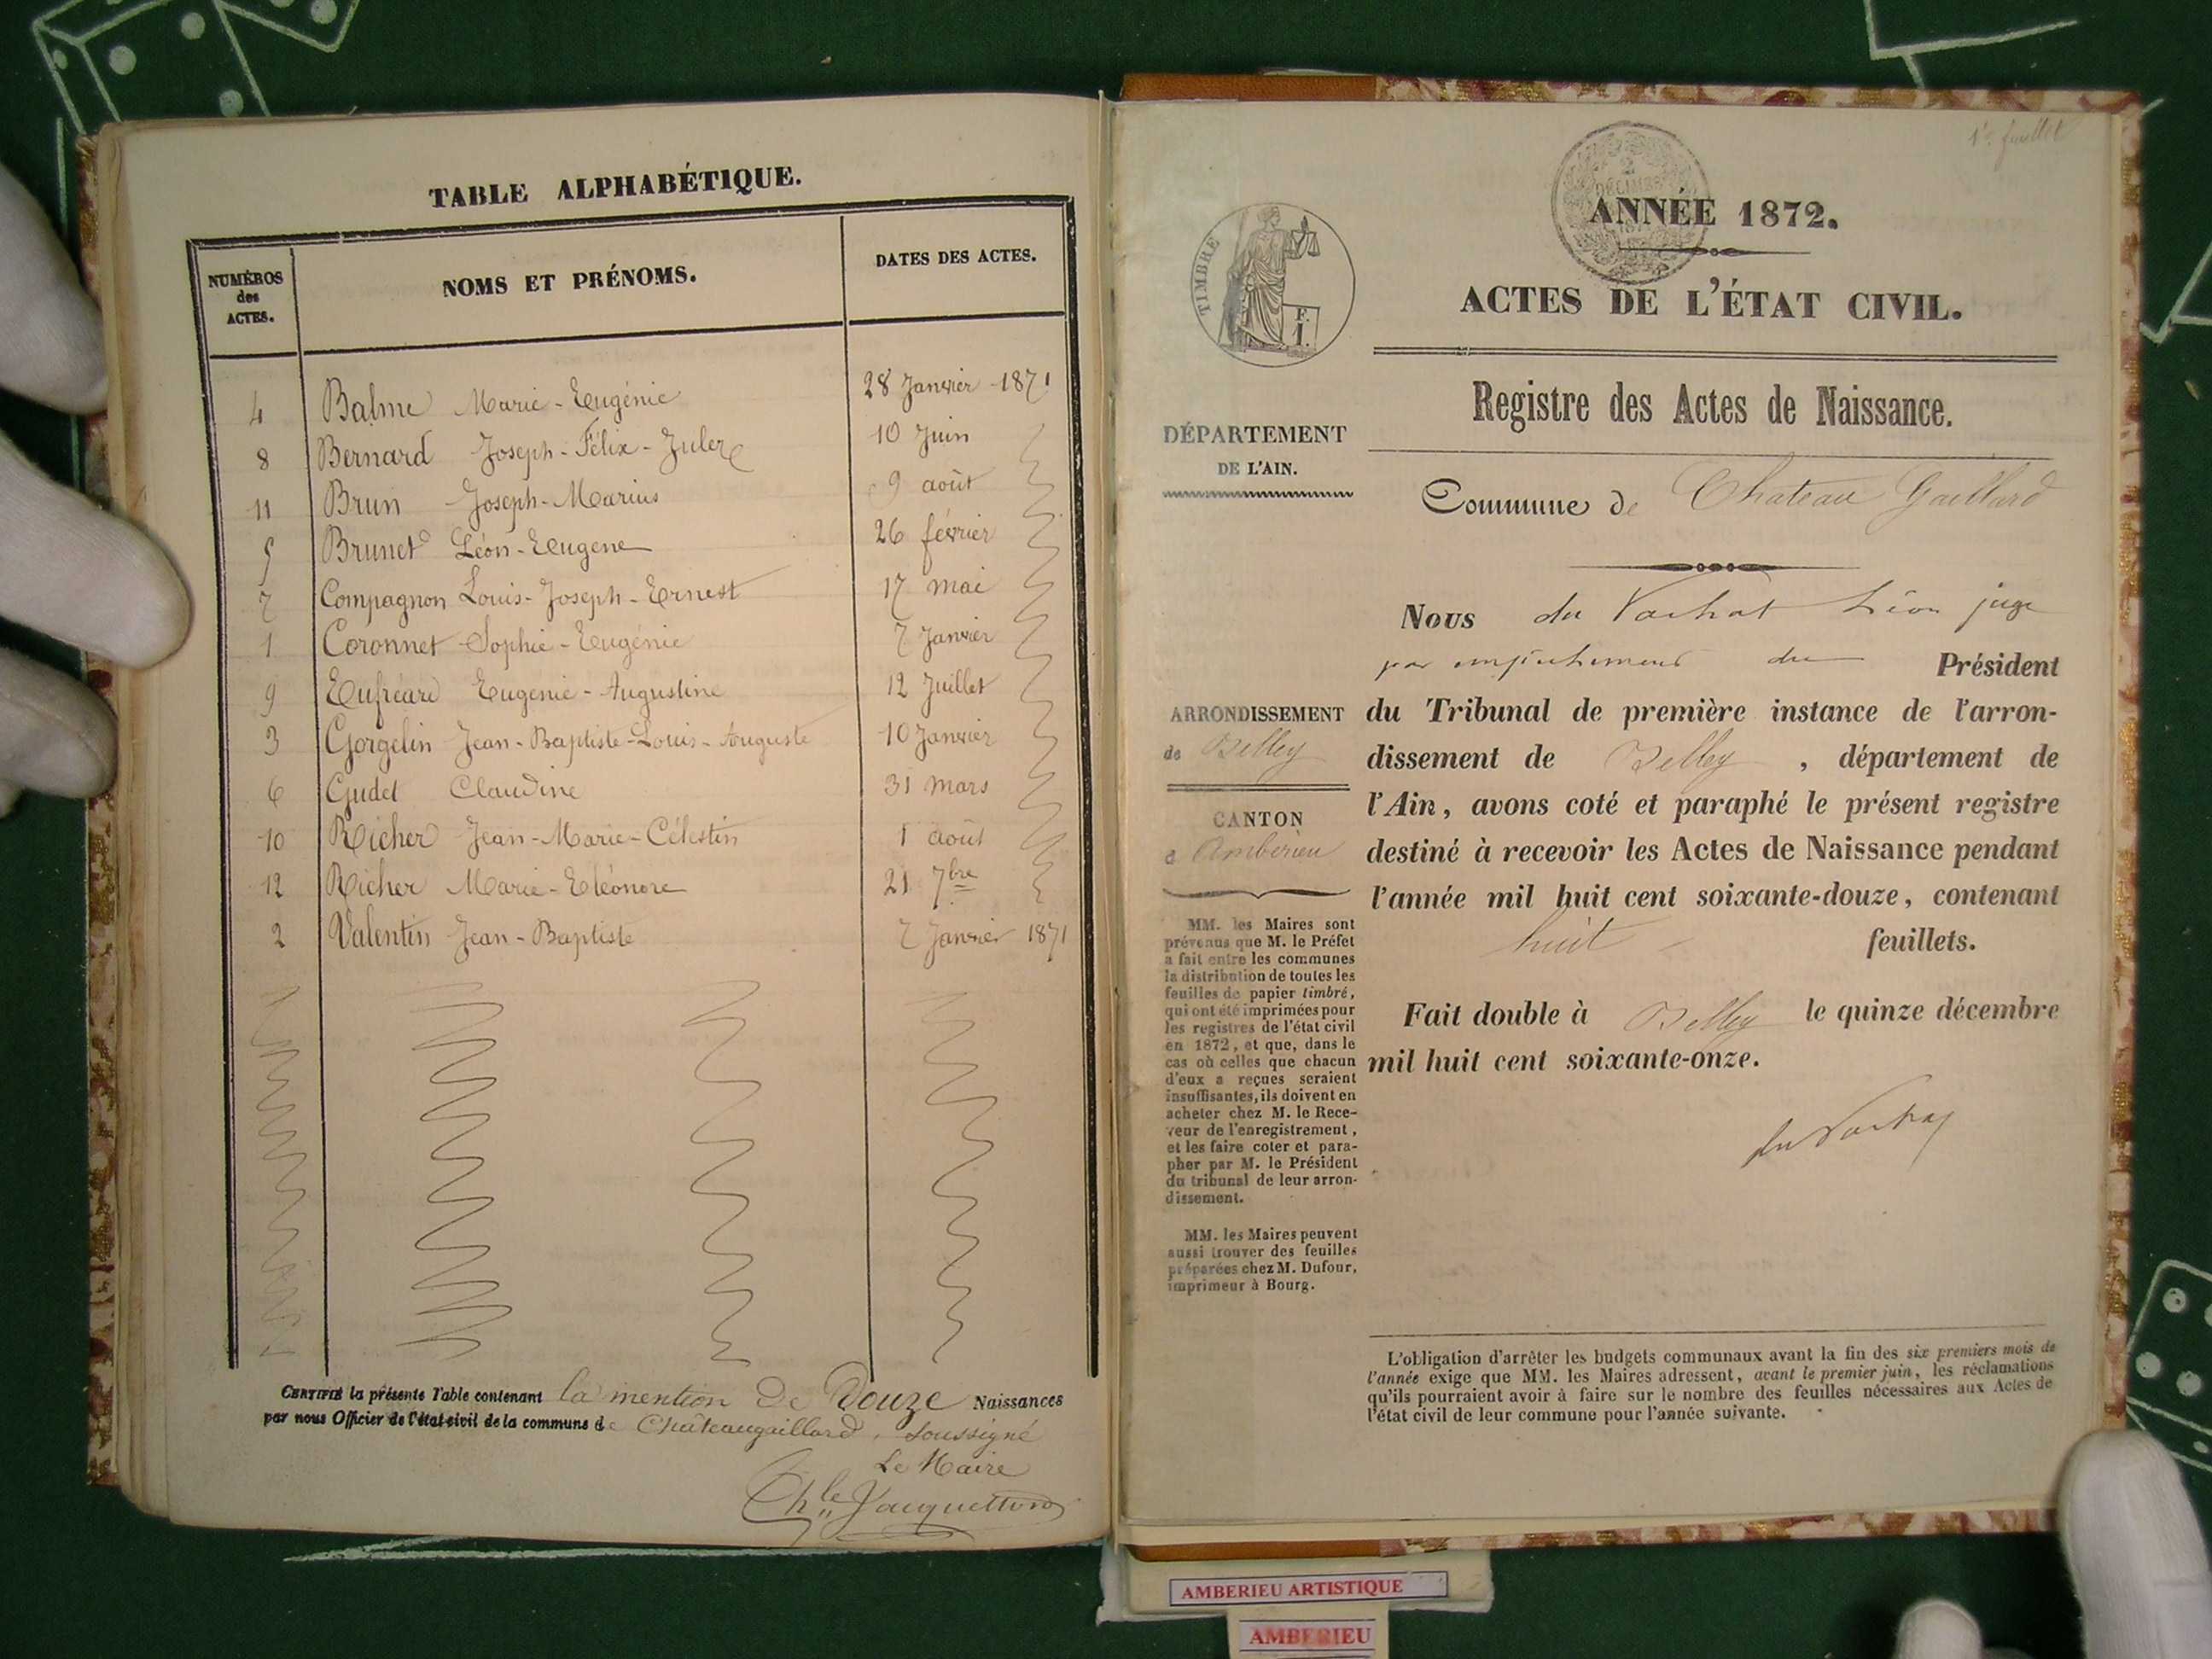 TABLE ALPHABÉTIQUE.
NUMÉROS des ACTES.
NOMS ET PRÉNOMS.
DATES DES ACTES.
4 Balme Marie-Eugénie 28 Janvier 1871
8 Bernard Joseph-Félix-Jules 10 Juin
11 Brun Joseph-Marius 9 août
5 Brunet Léon-Eugene 26 février
7 Compagnon Louis-Joseph-Ernest 17 mai
1 Coronnet Sophie-Eugénie 7 Janvier
9 Eugenie-Augustine 12 Juillet
3 Gorgelin Jean-Baptiste-Louis-Auguste 10 Janvier
6 Gudet Claudine 31 mars
10 Richer Jean-Marie-Célestin 1 août
12 Richer Marie-Eléonore 21 7bre
2 Valentin Jean-Baptiste 7 Janvier 1871
CERTIFIÉ la présente Table contenant la mention de Douze Naissances
par nous Officier de l'état-civil de la commune de Châteaugaillard, soussigné
Le Maire
1er feuillet
TIMBRE
F. I.
2 DÉCIMES
ANNÉE 1872.
ACTES DE L'ÉTAT CIVIL.
Registre des Actes de Naissance.
DÉPARTEMENT
DE L'AIN.
Commune de Chateau Gaillard
Nous du Vachat Léon juge
par empêchement du Président
ARRONDISSEMENT
de Belley
CANTON
d Ambérieu
du Tribunal de première instance de l'arron-
dissement de Belley, département de
l'Ain, avons coté et paraphé le présent registre
destiné à recevoir les Actes de Naissance pendant
l'année mil huit cent soixante-douze, contenant
huit feuillets.
Fait double à Belley le quinze décembre
mil huit cent soixante-onze.
du Vachat
MM. les Maires sont
prévenus que M. le Préfet
a fait entre les communes
la distribution de toutes les
feuilles de papier timbré,
qui ont été imprimées pour
les registres de l'état civil
en 1872, et que, dans le
cas où celles que chacun
d'eux a reçues seraient
insuffisantes, ils doivent en
acheter chez M. le Rece-
veur de l'enregistrement,
et les faire coter et para-
pher par M. le Président
du tribunal de leur arron-
dissement.
MM. les Maires peuvent
aussi trouver des feuilles
préparées chez M. Dufour,
imprimeur à Bourg.
L'obligation d'arrêter les budgets communaux avant la fin des six premiers mois de
l'année exige que MM. les Maires adressent, avant le premier juin, les réclamations
qu'ils pourraient avoir à faire sur le nombre des feuilles nécessaires aux Actes de
l'état civil de leur commune pour l'année suivante.
AMBERIEU ARTISTIQUE
AMBERIEU